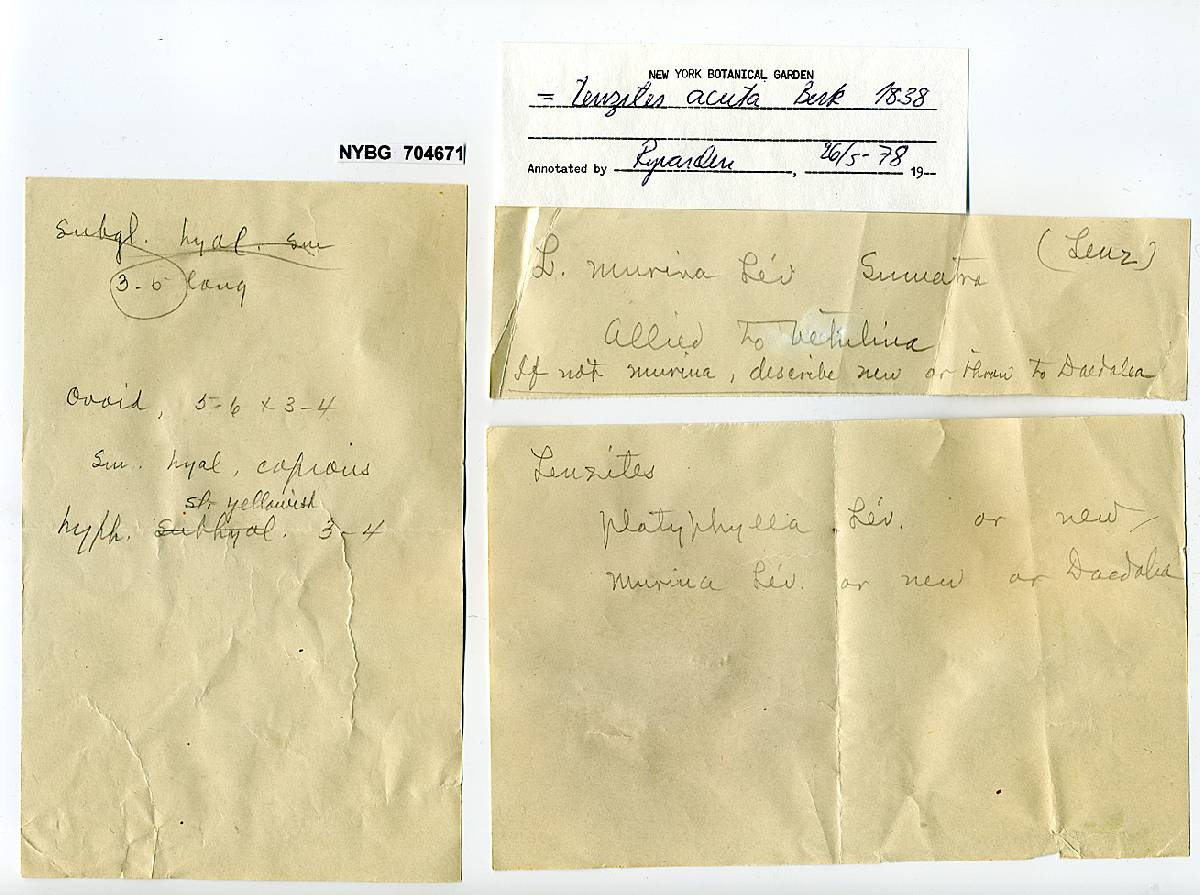 NEW YORK BOTANICAL GARDEN
= Lenzites acuta Berk 1838
Annotated by Ryvarden, 26/5-78 19--
NYBG 704671
subgl. hyal. sm
3-5 long
Ovoid, 5-6 x 3-4
sm. hyal, copious
sl. yellowish
hyph. subhyal. 3-4
(Lenz)
L. murina Lév Sumatra
Allied to betulina
If not murina, describe new or throw to Daedalea
Lenzites
platyphylla Lév. or new
murina Lév. or new or Daedalea